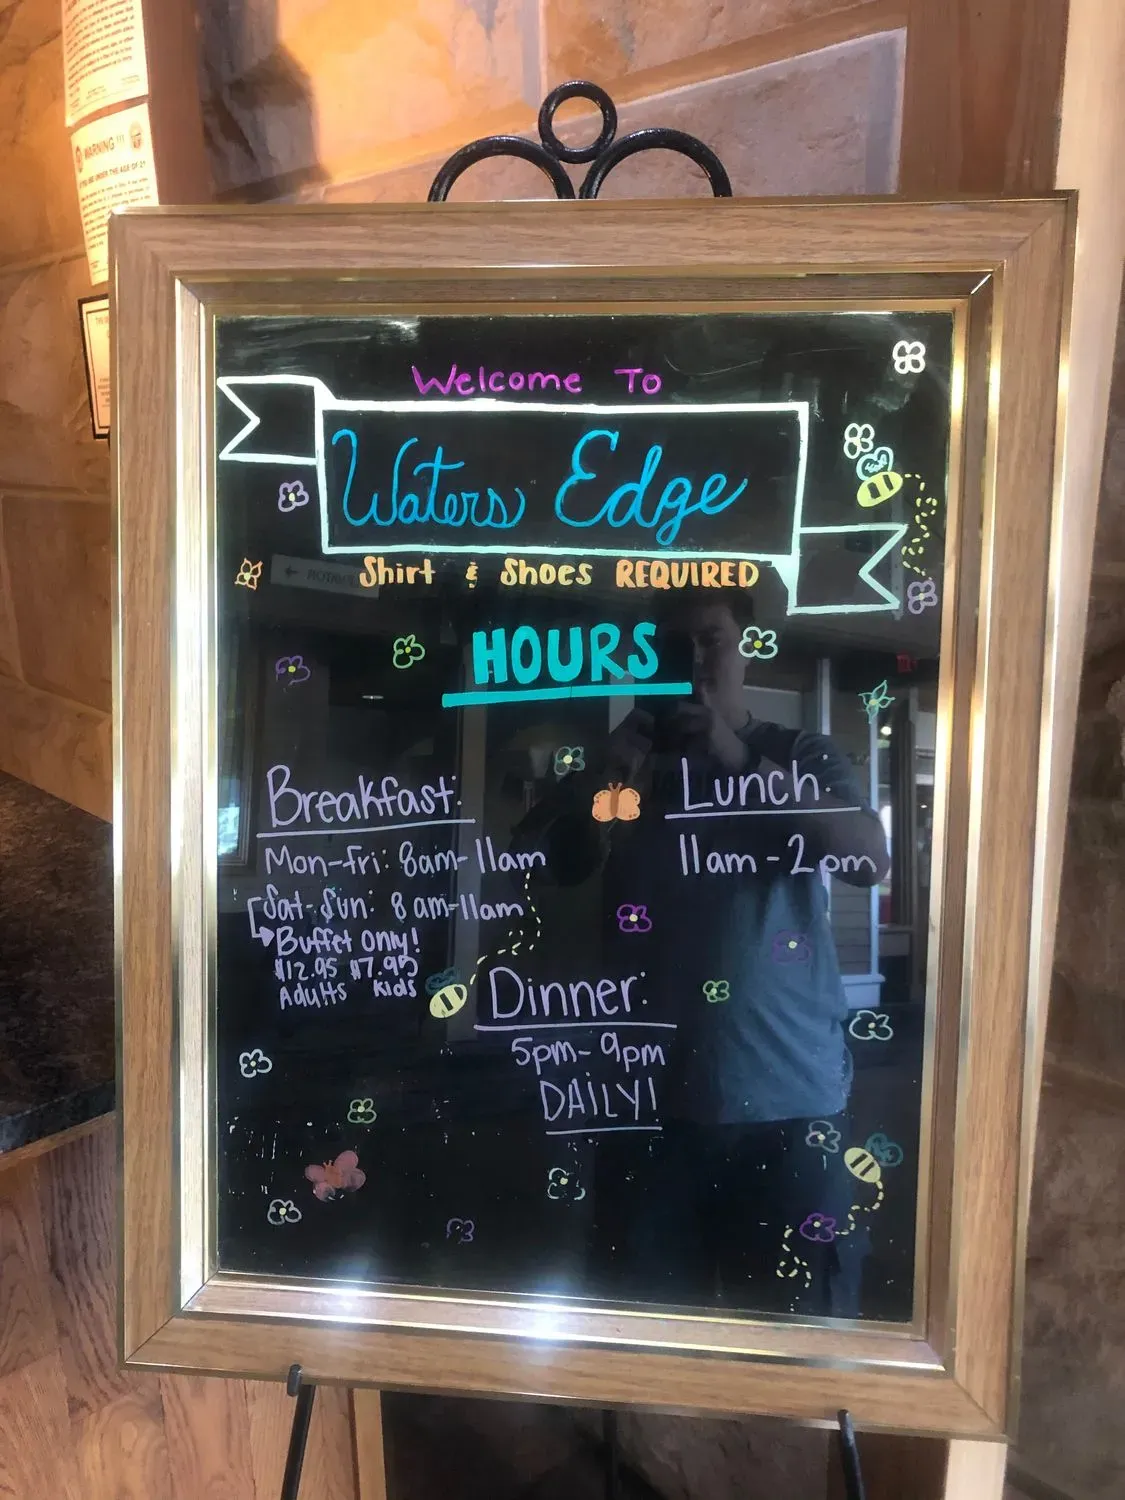 WARNING !!!
Welcome To
Waters Edge
Shirt & Shoes REQUIRED
HOURS
Breakfast:
Mon-Fri: 8am-11am
Sat-Sun: 8am-11am
Buffet Only!
$12.95 $7.95
Adults Kids
Lunch:
11am-2pm
Dinner:
5pm-9pm
DAILY!